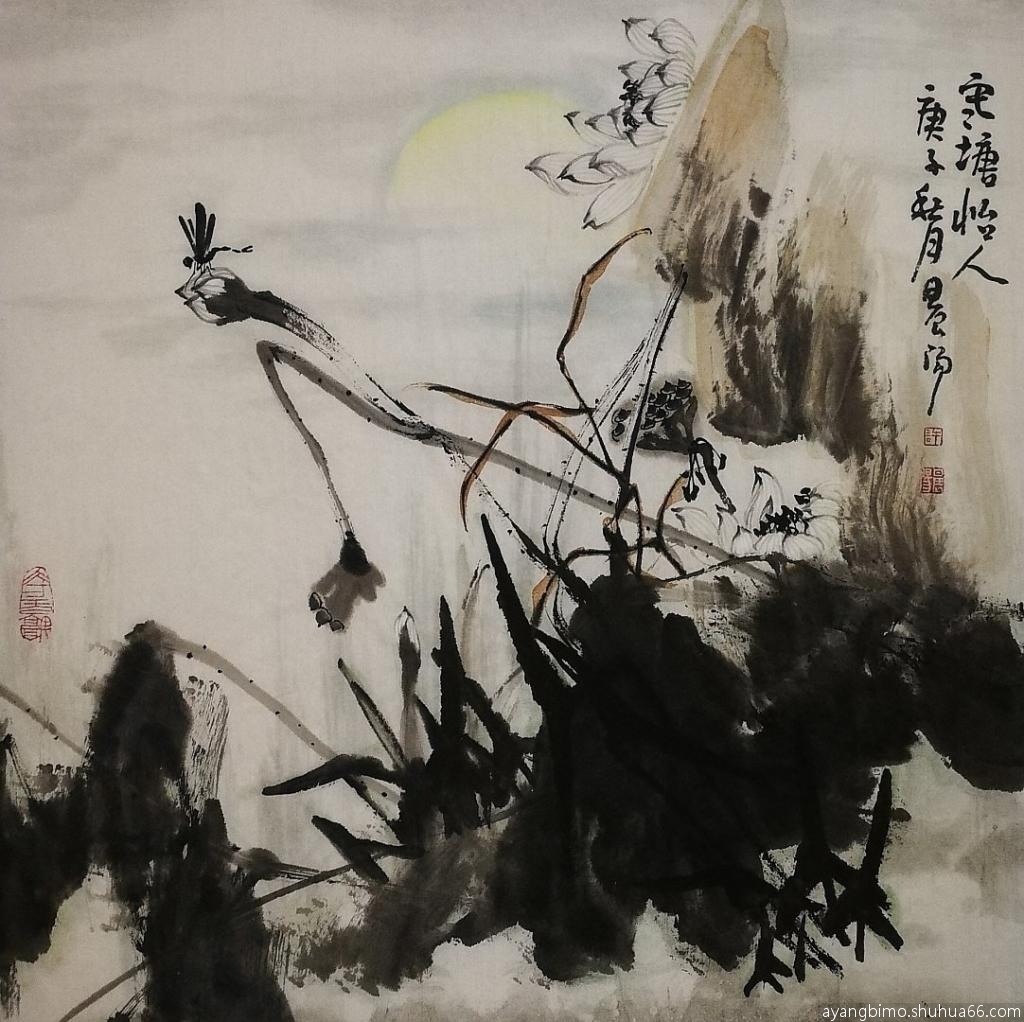 寒塘怡人
庚子秋月晨阳
许
ayangbimo.shuhua66.com